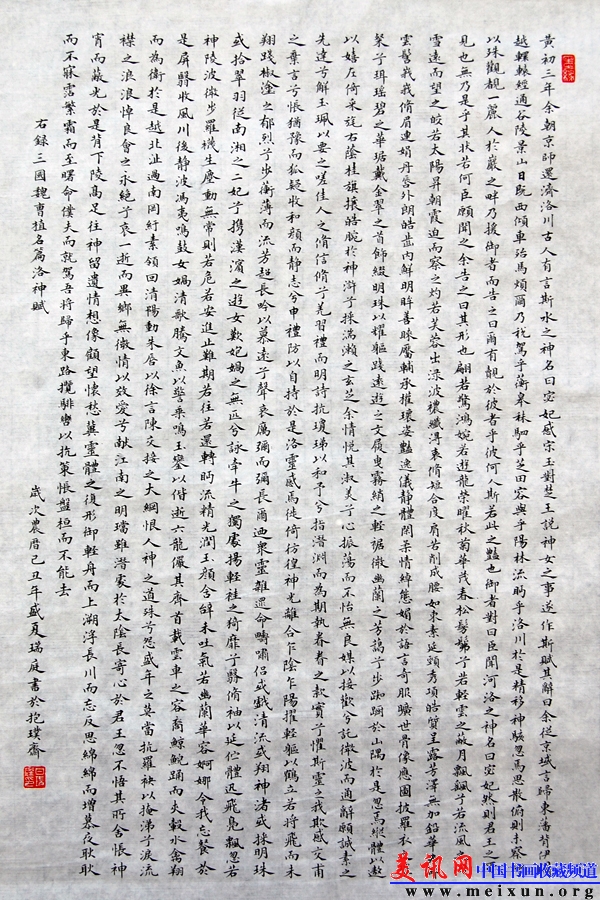 黃初三年余朝京師還濟洛川古人有言斯水之神名曰宓妃感宗玉對楚王說神女之事遂作斯賦其辭曰余從京域言歸東藩背伊
越轘轅經通谷陵景山日既西傾車殆馬煩爾乃稅駕乎蘅皋秣駟乎芝田容與乎陽林流眄乎洛川於是精移神駭忽焉思散俯則未察
以殊觀覩一麗人於巖之畔乃援御者而告之曰爾有覿於彼者乎彼何人斯若此之豔也御者對曰臣聞河洛之神名曰宓妃然則君王之
見也無乃是乎其狀若何臣願聞之余告之曰其形也翩若驚鴻婉若遊龍榮曜秋菊華茂春松髣髴兮若輕雲之蔽月飄飖兮若流風之
雪遠而望之皎若太陽昇朝霞迫而察之灼若芙蓉出淥波穠纖得衷脩短合度肩若削成腰如束素延頸秀項皓質呈露芳澤無加鉛華
雲髻峩峩脩眉連娟丹脣外朗皓齒內鮮明眸善睞靨輔承權瓌姿豔逸儀靜體閑柔情綽態媚於語言奇服曠世骨像應圖披羅衣
粲兮珥瑤碧之華琚戴金翠之首飾綴明珠以耀軀踐遠遊之文履曳霧綃之輕裾微幽蘭之芳藹兮步踟躕於山隅於是忽焉縱體以遨
以嬉左倚采旄右蔭桂旗攘皓腕於神滸兮採湍瀨之玄芝余情悅其淑美兮心振蕩而不怡無良媒以接歡兮託微波而通辭願誠素之
先達兮解玉珮以要之嗟佳人之脩信脩兮羌習禮而明詩抗瓊珶以和予兮指潛淵而為期執眷眷之款實兮懼斯靈之我欺感交甫
之棄言兮悵猶豫而狐疑收和顏而靜志兮申禮防以自持於是洛靈感焉徙倚彷徨神光離合乍陰乍陽擢輕軀以鶴立若將飛而未
翔踐椒塗之郁烈兮步蘅薄而流芳超長吟以慕遠兮聲哀厲而彌長爾迺衆靈雜遝命疇嘯侶或戲清流或翔神渚或採明珠
或拾翠羽從南湘之二妃兮攜漢濱之遊女歎匏媧之無匹兮詠牽牛之獨處揚輕袿之綺靡兮翳脩袖以延佇體迅飛鳧飄忽若
神陵波微步羅襪生塵動無常則若危若安進止難期若往若還轉眄流精光潤玉顏含辭未吐氣若幽蘭華容婀娜令我忘餐於
是屏翳收風川后靜波馮夷鳴鼓女媧清歌騰文魚以警乘鳴玉鑾以偕逝六龍儼其齊首載雲車之容裔鯨鯢踊而夾轂水禽翔
而為衛於是越北沚過南岡紆素領回清陽動朱唇以徐言陳交接之大綱恨人神之道殊兮怨盛年之莫當抗羅袂以掩涕兮淚流
襟之浪浪悼良會之永絕兮哀一逝而異鄉無微情以效愛兮獻江南之明璫雖潛處於太陰長寄心於君王忽不悟其所舍悵神
宵而蔽光於是背下陵高足往神留遺情想像顧望懷愁冀靈體之復形御輕舟而上溯浮長川而忘反思綿綿而增慕夜耿耿
而不寐霑繁霜而至曙命僕夫而就駕吾將歸乎東路攬騑轡以抗策悵盤桓而不能去
右錄三國魏曹植名篇洛神賦
歲次農曆己丑年盛夏瑞庭書於抱璞齋
美讯网 中国书画收藏频道
www.meixun.org